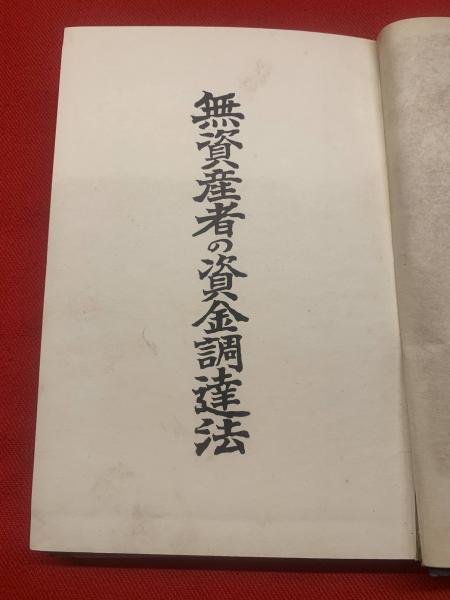 無資産者の資金調達法